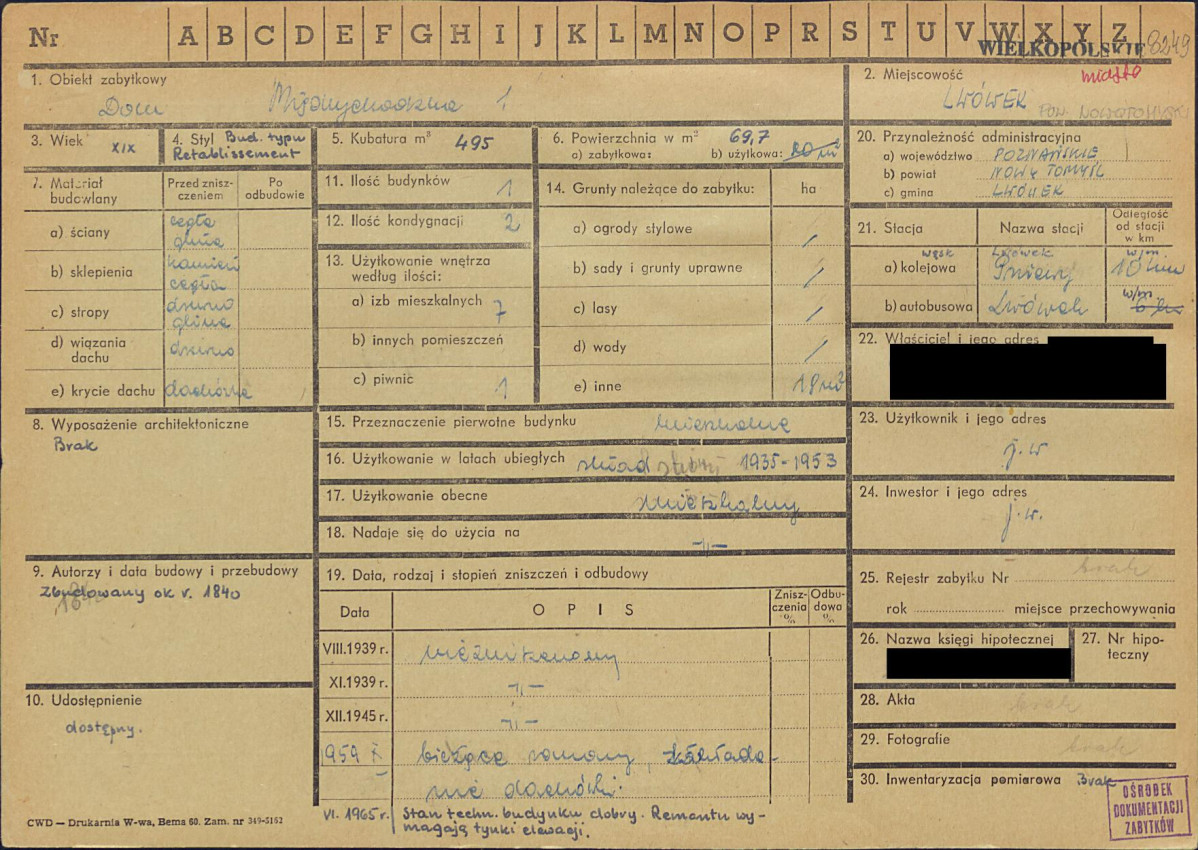 Nr A B C D E F G H I J K L M N O P R S T U V W X Y Z
WIELKOPOLSKIE 8249
1. Obiekt zabytkowy
Dom Międzychodzka 1
2. Miejscowość miasto
LWÓWEK
POW. NOWOTOMYSKI
3. Wiek XIX
4. Styl Bud. typu
Retablissement
5. Kubatura m³ 495
6. Powierzchnia w m² 69,7
a) zabytkowa: b) użytkowa: 20 m²
7. Materiał budowlany
Przed zniszczeniem
Po odbudowie
a) ściany cegła
glina
b) sklepienia kamień
cegła
c) stropy drzewo
glina
d) wiązania dachu drzewo
e) krycie dachu dachówka
8. Wyposażenie architektoniczne
Brak
9. Autorzy i data budowy i przebudowy
Zbudowany ok r. 1840
10. Udostępnienie
dostępny.
11. Ilość budynków 1
12. Ilość kondygnacji 2
13. Użytkowanie wnętrza
według ilości:
a) izb mieszkalnych 7
b) innych pomieszczeń
c) piwnic 1
14. Grunty należące do zabytku: ha
a) ogrody stylowe /
b) sady i grunty uprawne /
c) lasy /
d) wody /
e) inne
15. Przeznaczenie pierwotne budynku mieszkalne
16. Użytkowanie w latach ubiegłych skład zboży 1935-1953
17. Użytkowanie obecne mieszkalny
18. Nadaje się do użycia na -"-
19. Data, rodzaj i stopień zniszczeń i odbudowy
Data OPIS Zniszczenia % Odbudowa %
VIII.1939 r.
XI.1939 r. -"-
XII.1945 r. -"-
1959 bieżące remonty, zakłada-
nie dachówki.
VI. 1965 r. Stan techn. budynku dobry. Remontu wy-
magają tynki elewacji.
20. Przynależność administracyjna
a) województwo POZNAŃSKIE
b) powiat NOWY TOMYŚL
c) gmina LWÓWEK
21. Stacja Nazwa stacji Odległość od stacji w km
a) kolejowa wąsk Lwówek w/m.
Pniewy 10 km
b) autobusowa Lwówek w/m
22. Właściciel i jego adres
23. Użytkownik i jego adres
j. w
24. Inwestor i jego adres
j. w.
25. Rejestr zabytku Nr brak
rok miejsce przechowywania
26. Nazwa księgi hipotecznej
27. Nr hipoteczny
28. Akta brak
29. Fotografie brak
30. Inwentaryzacja pomiarowa Brak
OŚRODEK
DOKUMENTACJI
ZABYTKÓW
CWD — Drukarnia W-wa, Bema 60. Zam. nr 349-5162